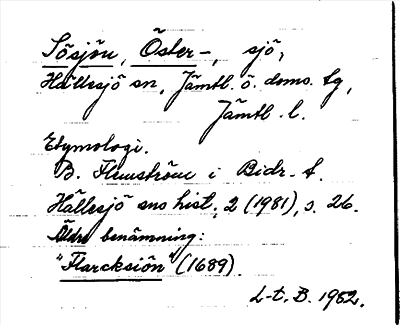 Sösjön, Öster-, sjö,
Hällesjö sn, Jämtl. ö. doms. tg,
Jämtl. l.
Etymologi.
B. Flemström i Bidr. t.
Hällesjö sns hist., 2 (1981), s. 26.
Äldre benämning:
"Flarcksiön" (1689).
L-t. B. 1982.